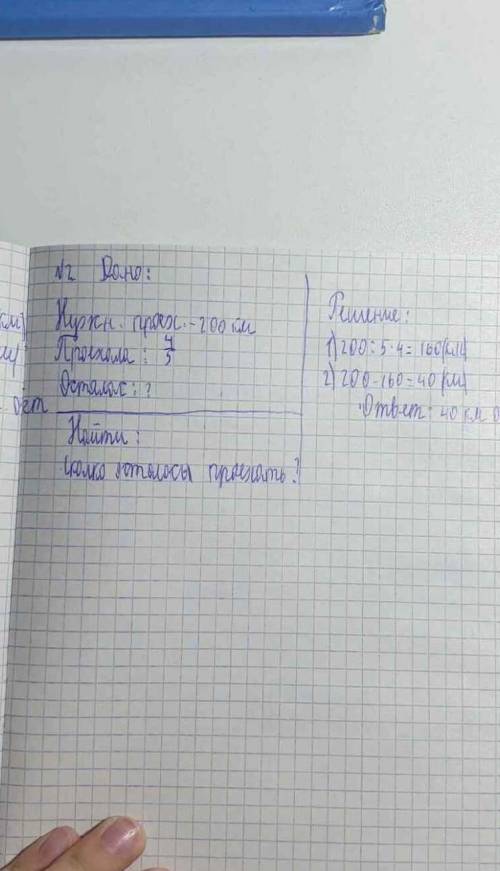 км)
N2 Дано:
Нужн. проех. - 200 км
Проехала: 4/5
Осталос: ?
ост
Найти:
сколко осталось проехать?
Решение:
1) 200 : 5 · 4 = 160 (км)
2) 200 - 160 = 40 (км)
Ответ: 40 км о